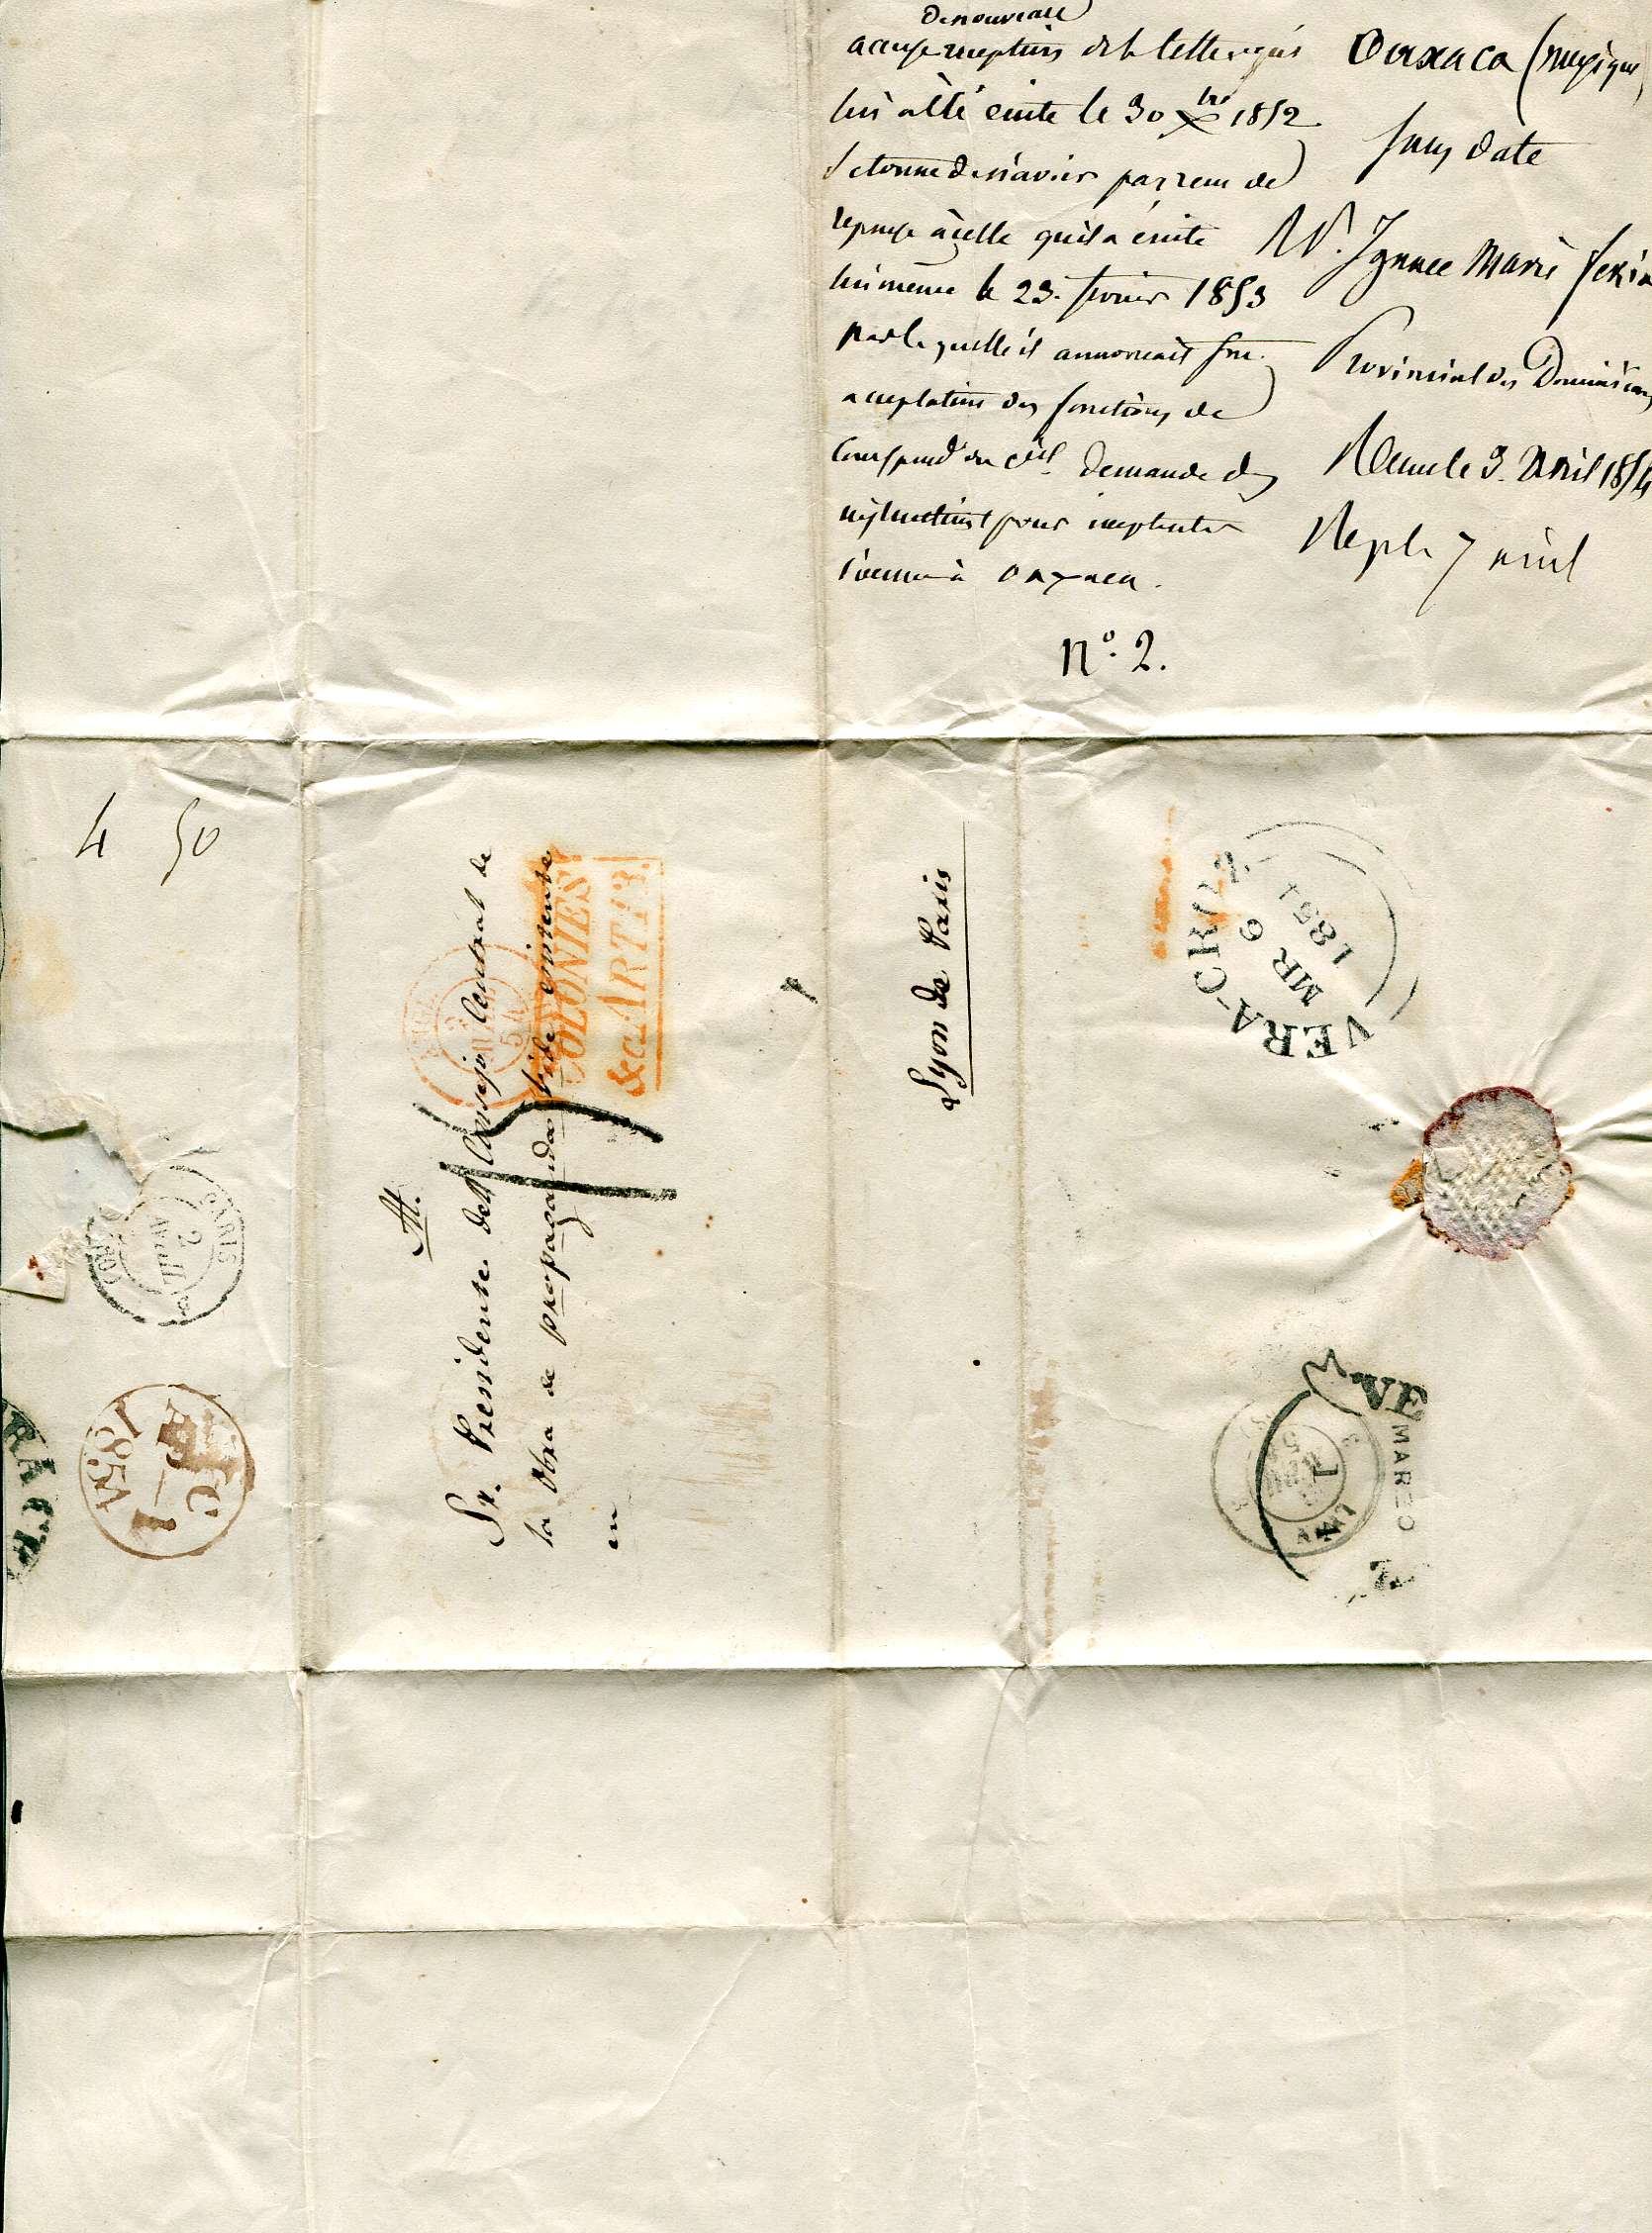 De nouveau
accuse reception de la lettre qui
lui a été écrite le 30 Xbre 1852
s'étonne de n'avoir pas reçu de
reponse à celle qu'il a écrite
lui même le 23. fevrier 1853
par laquelle il annoncait son
acceptation des fonctions de
correspond du Cél. Demande des
instructions pour implanter
l'œuvre à Oaxaca.
Oaxaca (Mexique)
sans date
Mr. Ignace Marie
Provincial des Dominicains
Recu le 3. Avril 1854
Rep le 7 avril
N.o 2.
4 50
A.
Sr. Presidente del Consejo Central de
la Obra de propaganda fide existente
en
Lyon de Paris
COLONIES
&c. ART. 13.
VERA-CRUZ
MR 6
1854
PARIS
2
AVRIL
1
1854
MARZO